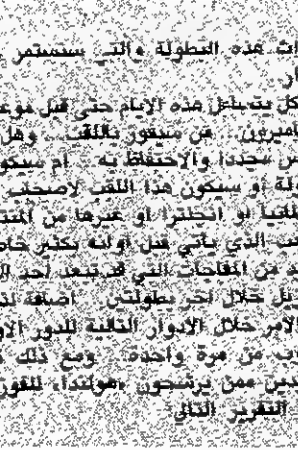 ات هذه البطولة والتي ستستمر
ار.
كل يتساءل هذه الايام حتى قبل موعد
اميرون.. من سيفوز باللقب.. وهل
س مجددا والاحتفاظ به.. ام سيكو
لة او سيكون هذا اللقب لاصحاب
لمانيا او انجلترا او غيرها من المنت
ب الذي ياتي قبل اوانه بكثير خاص
د من المفاجآت التي قد تبعد احد ال
ثل خلال اخر بطولتين.. اضافة لذ
الامر خلال الادوار التالية للدور الاو
اب من مرة واحدة.. ومع ذلك
دين ممن يرشحون «هولندا» للفوز
التقرير التالي